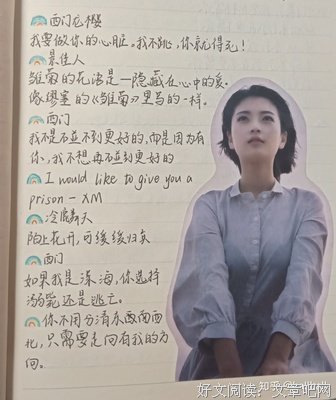 西门龙樱
我要做你的心脏。我不跳，你就得死！
景佳人
雏菊的花语是—隐藏在心中的爱。
像缪塞的《雏菊》里写的一样。
西门
我不是不遇到更好的，而是因为有
你，我不想再遇到更好的
I would like to give you a
prison - XM
冷
陌上花开，可缓缓归矣
西门
如果我是深海，你选择
溺死还是逃亡。
你不用分清东西南
北，只需要走向有我的方
向。
知乎
好文阅读：文章吧网